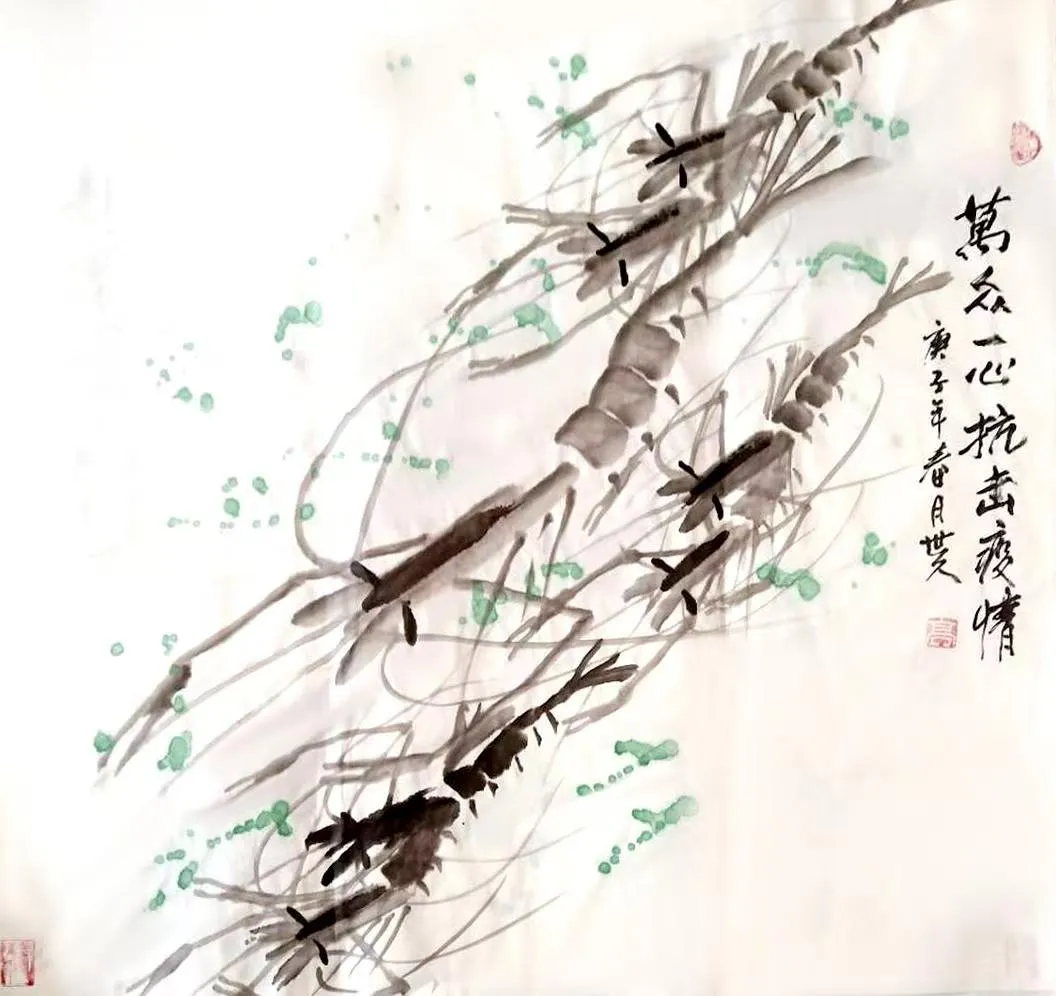 萬众一心抗击疫情
庚子年春月世人